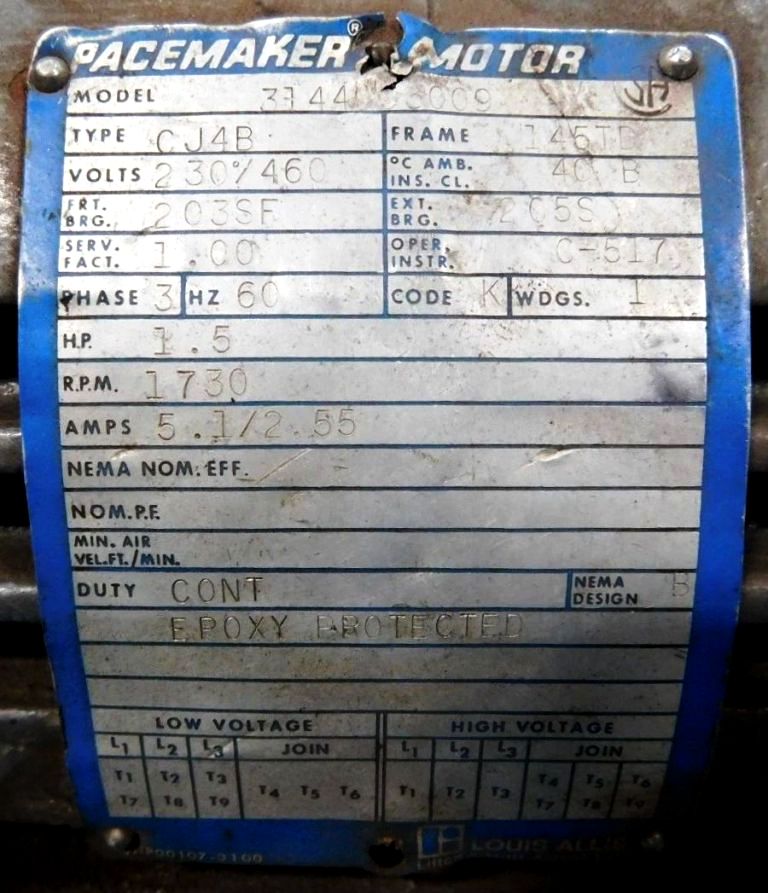 PACEMAKER® MOTOR
MODEL
TYPE CJ4B FRAME
VOLTS 230/460 °C AMB. INS. CL. 40 B
FRT. BRG. 203SF EXT. BRG.
SERV. FACT. 1.00 OPER. INSTR. C-517
PHASE 3 HZ 60 CODE K WDGS. 1
H.P. 1.5
R.P.M. 1730
AMPS 5.1/2.55
NEMA NOM. EFF.
NOM. P.F.
MIN. AIR
VEL.FT./MIN.
DUTY CONT NEMA DESIGN B
EPOXY PROTECTED
LOW VOLTAGE HIGH VOLTAGE
L1 L2 L3 JOIN L1 L2 L3 JOIN
T1 T2 T3 T4 T5 T6 T1 T2 T3 T4 T5 T6
T7 T8 T9 T7 T8 T9
LOUIS ALLIS